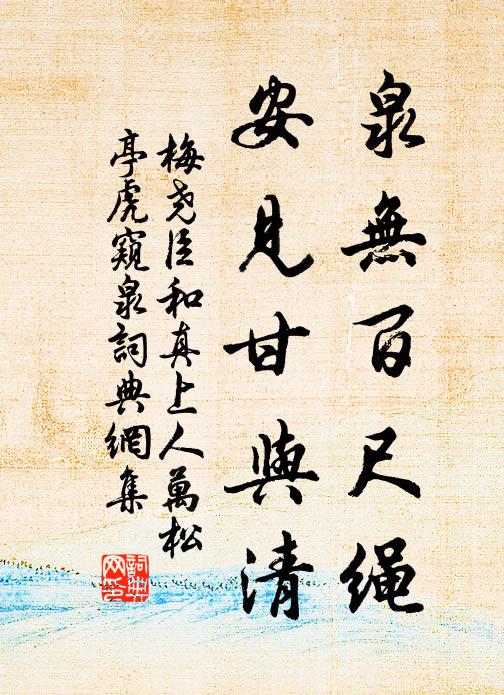 泉無百尺绳
安見甘與清
梅尧臣和真上人萬松
亭虎窺泉詞典網集
詞典
网集